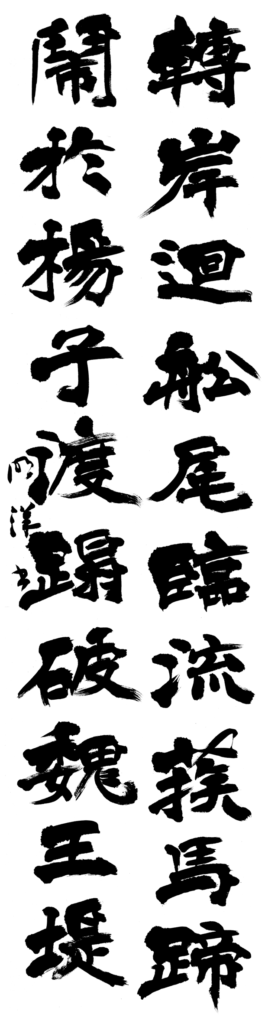 轉岸迴舩尾臨流蔟馬蹄
鬧於楊子渡蹋破魏王堤
洋书